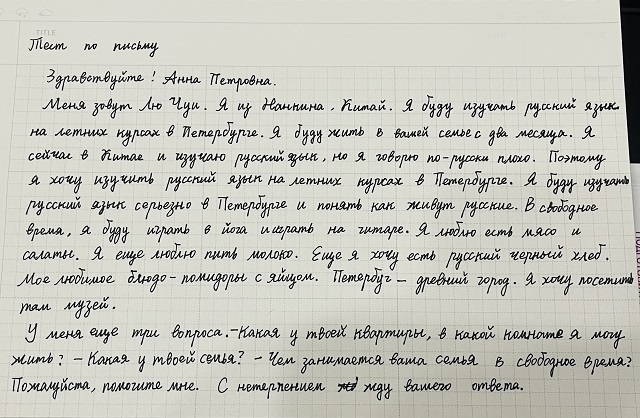 TITLE
Тест по письму
Здравствуйте! Анна Петровна.
Меня зовут Лю Чуи. Я из Нанкина, Китай. Я буду изучать русский язык
на летних курсах в Петербурге. Я буду жить в вашей семье с два месяца. Я
сейчас в Китае и изучаю русский язык, но я говорю по-русски плохо. Поэтому
я хочу изучить русский язык на летних курсах в Петербурге. Я буду изучать
русский язык серьезно в Петербурге и понять как живут русские. В свободное
время, я буду играть в йога и играть на гитаре. Я люблю есть мясо и
салаты. Я еще люблю пить молоко. Еще я хочу есть русский черный хлеб.
Мое любимое блюдо - помидоры с яйцом. Петербуг — древний город. Я хочу посетить
там музей.
У меня еще три вопроса. - Какая у твоей квартиры, в какой комнате я могу
жить? - Какая у твоей семья? - Чем занимается ваша семья в свободное время?
Пожалуйста, помогите мне. С нетерпением жду вашего ответа.